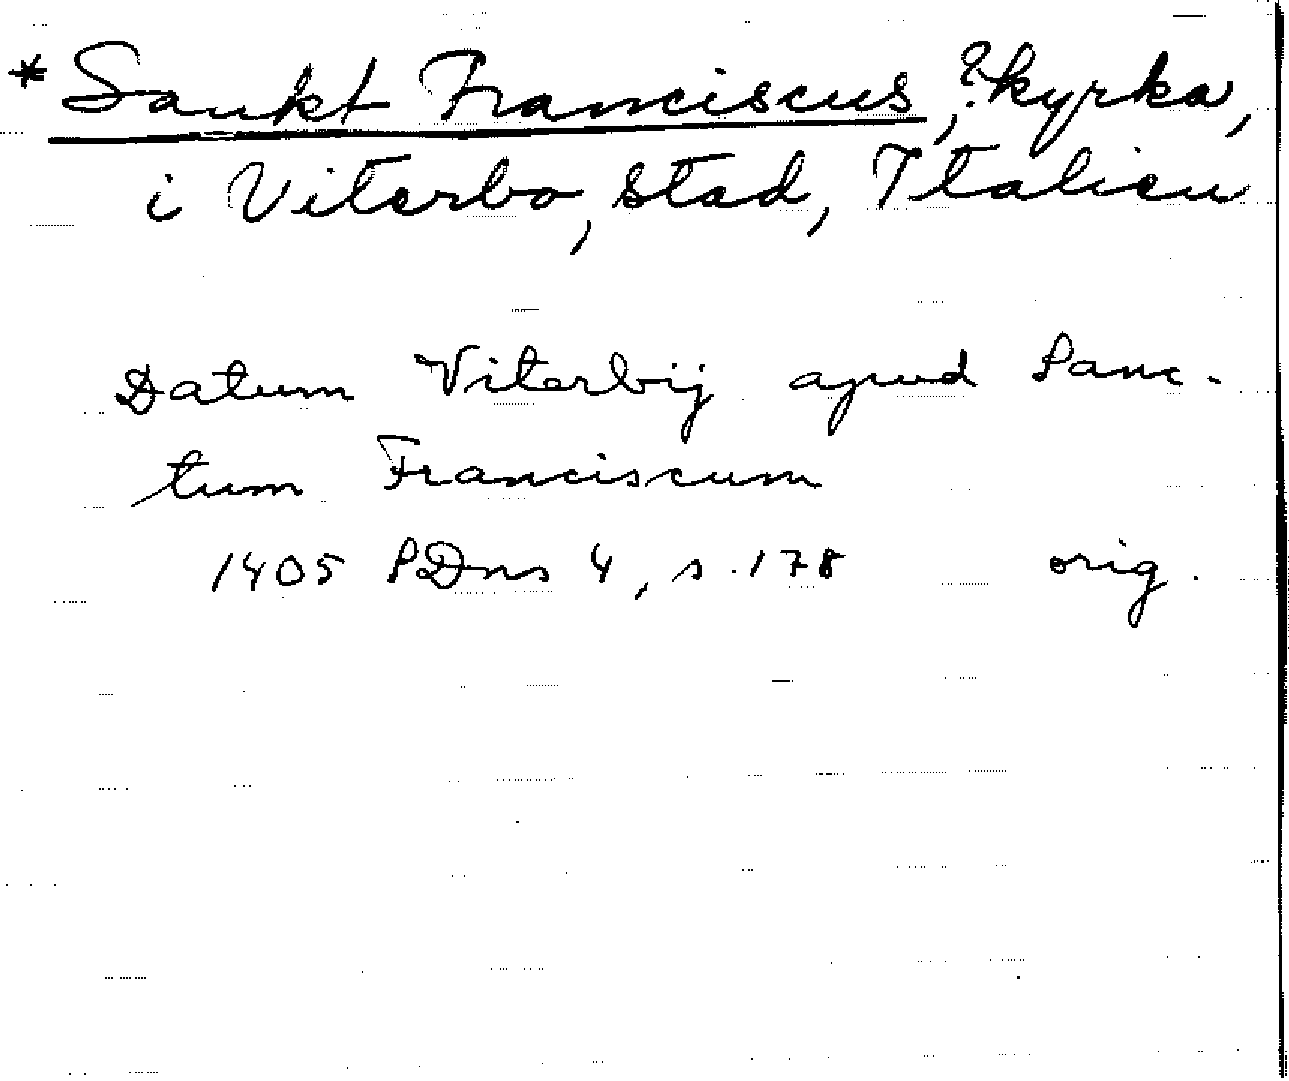 * Sankt Franciscus, ?kyrka,
i Viterbo, stad, Italien
Datum Viterbij apud Sanc-
tum Franciscum
1405 SDns 4, s. 178 orig.